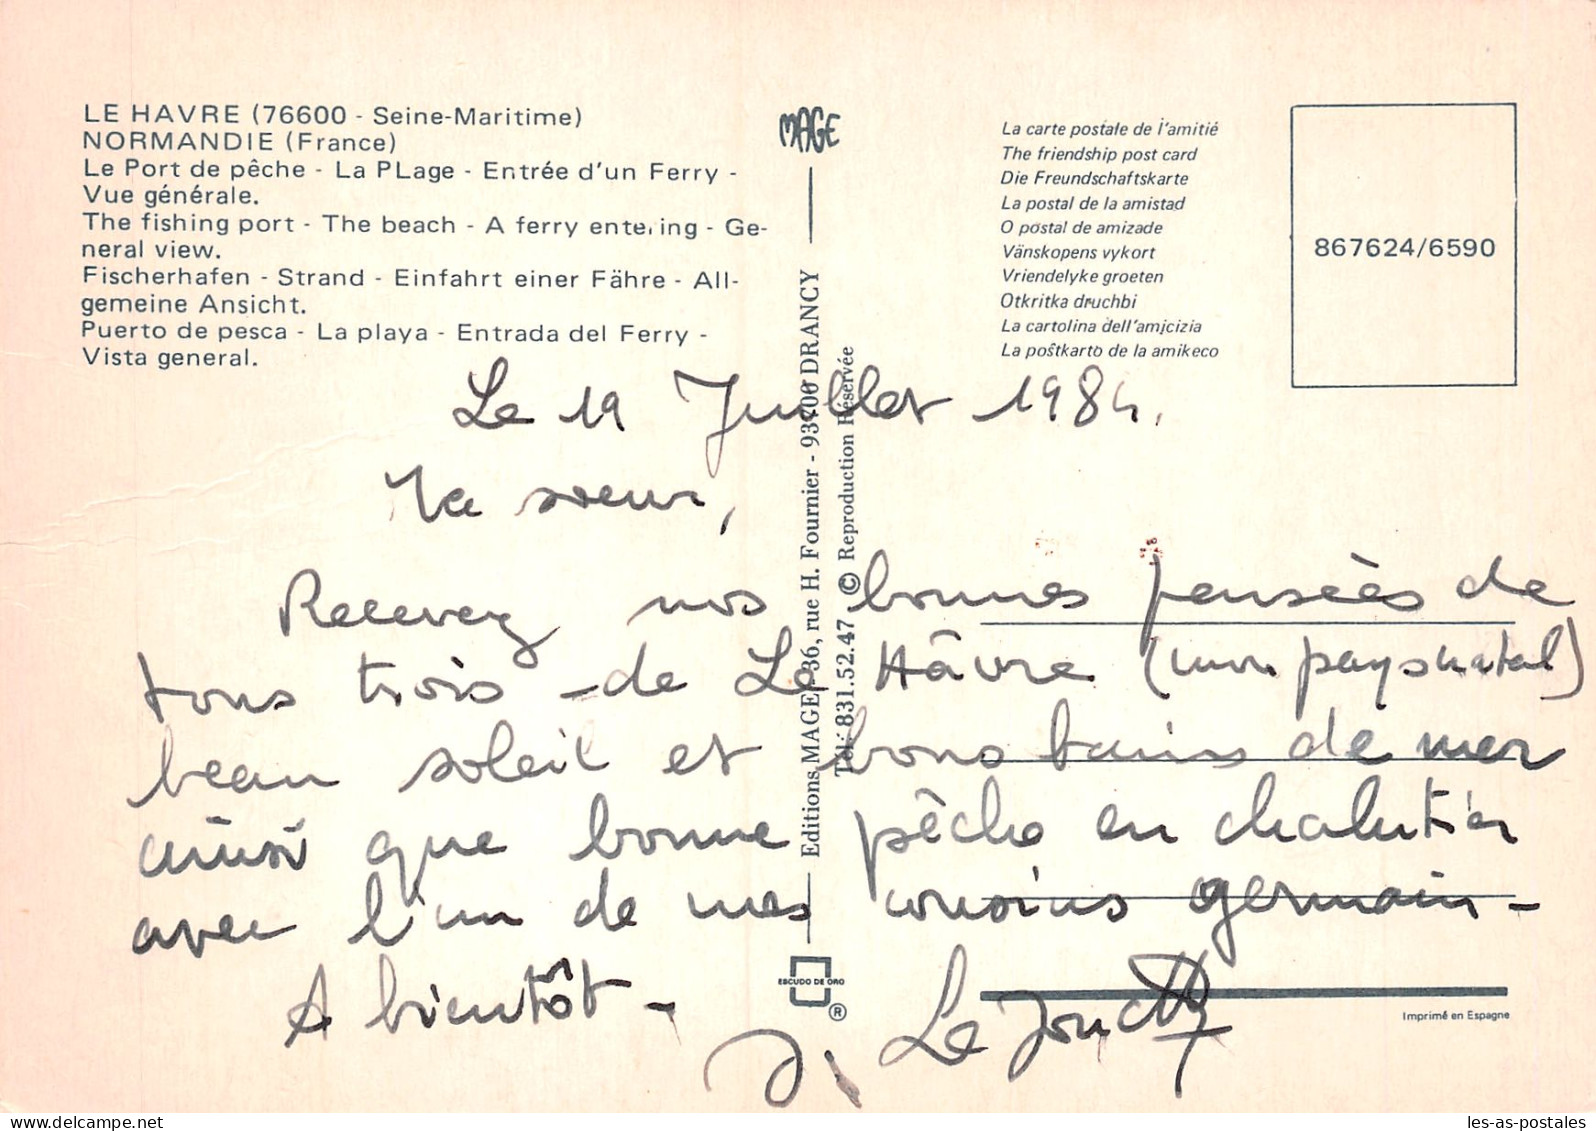 LE HAVRE (76600 - Seine-Maritime)
NORMANDIE (France)
Le Port de pêche - La PLage - Entrée d'un Ferry -
Vue générale.
The fishing port - The beach - A ferry entering - Ge-
neral view.
Fischerhafen - Strand - Einfahrt einer Fähre - All-
gemeine Ansicht.
Puerto de pesca - La playa - Entrada del Ferry -
Vista general.
MAGE
Editions MAGE - 36, rue H. Fournier - 93700 DRANCY
Tél.: 831.52.47 © Reproduction Réservée
ESCUDO DE ORO
®
La carte postale de l'amitié
The friendship post card
Die Freundschaftskarte
La postal de la amistad
O postal de amizade
Vänskopens vykort
Vriendelyke groeten
Otkritka druchbi
La cartolina dell'amicizia
La poŝtkarto de la amikeco
867624/6590
Le 19 Juillet 1984.
Ma soeur,
Recevez nos bonnes pensées de
tous trois - de Le Hâvre (mon pays natal)
beau soleil et bons bains de mer
ainsi que bonne pêche en chalutier
avec l'un de mes cousins germain -
A bientôt -
Imprimé en Espagne
les-as-postales